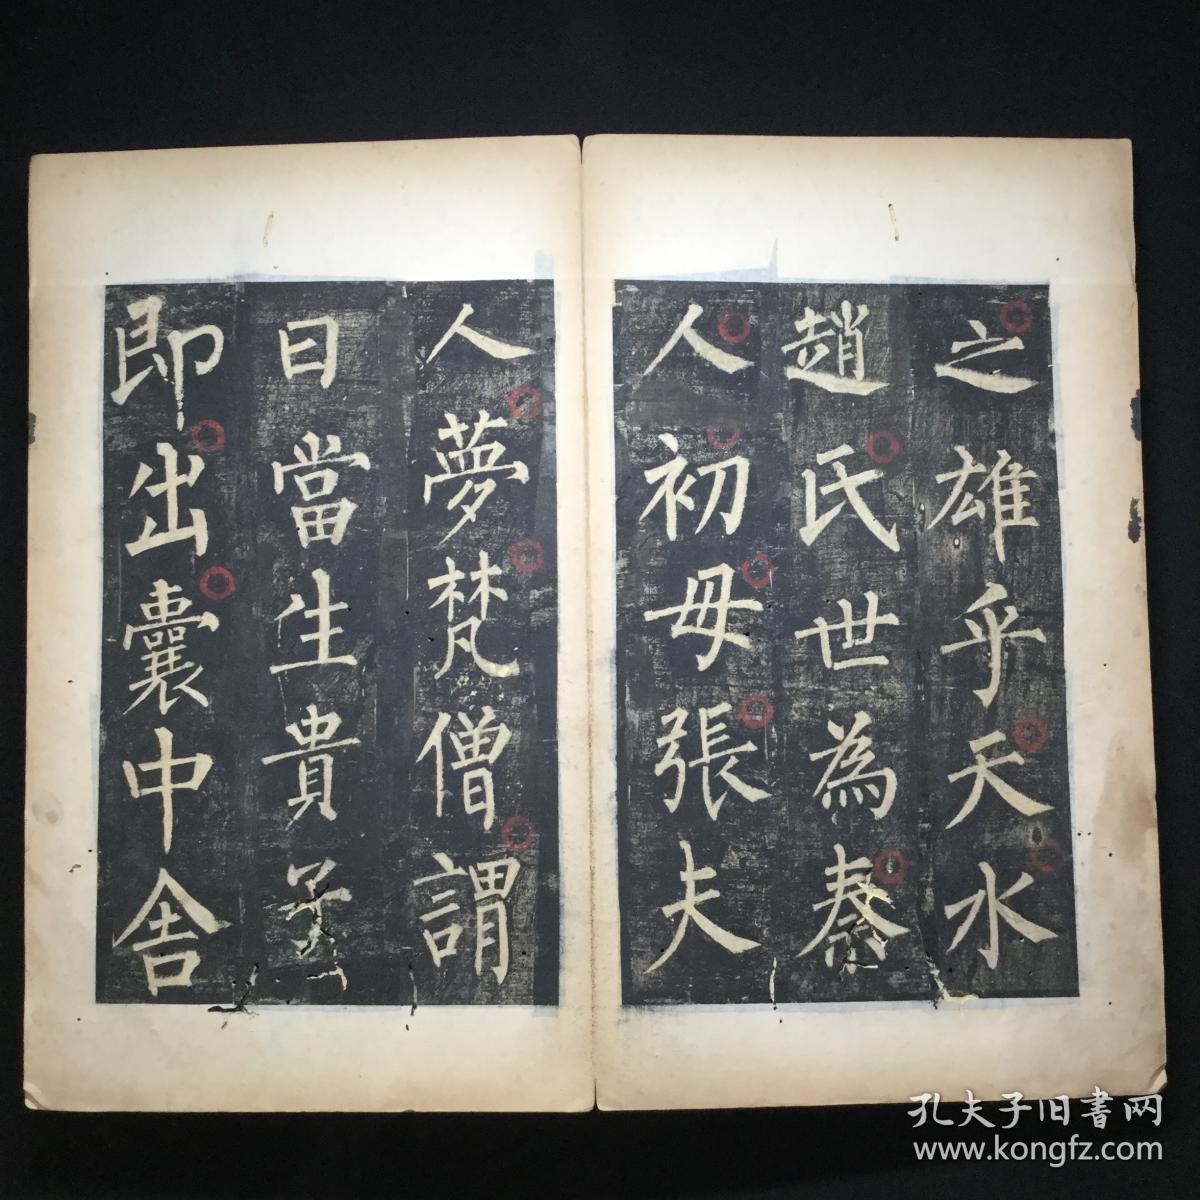 之雄乎天水
趙氏世為秦
人初母張夫
人夢梵僧謂
曰當生貴子
即出囊中舍
孔夫子旧書网
www.kongfz.com